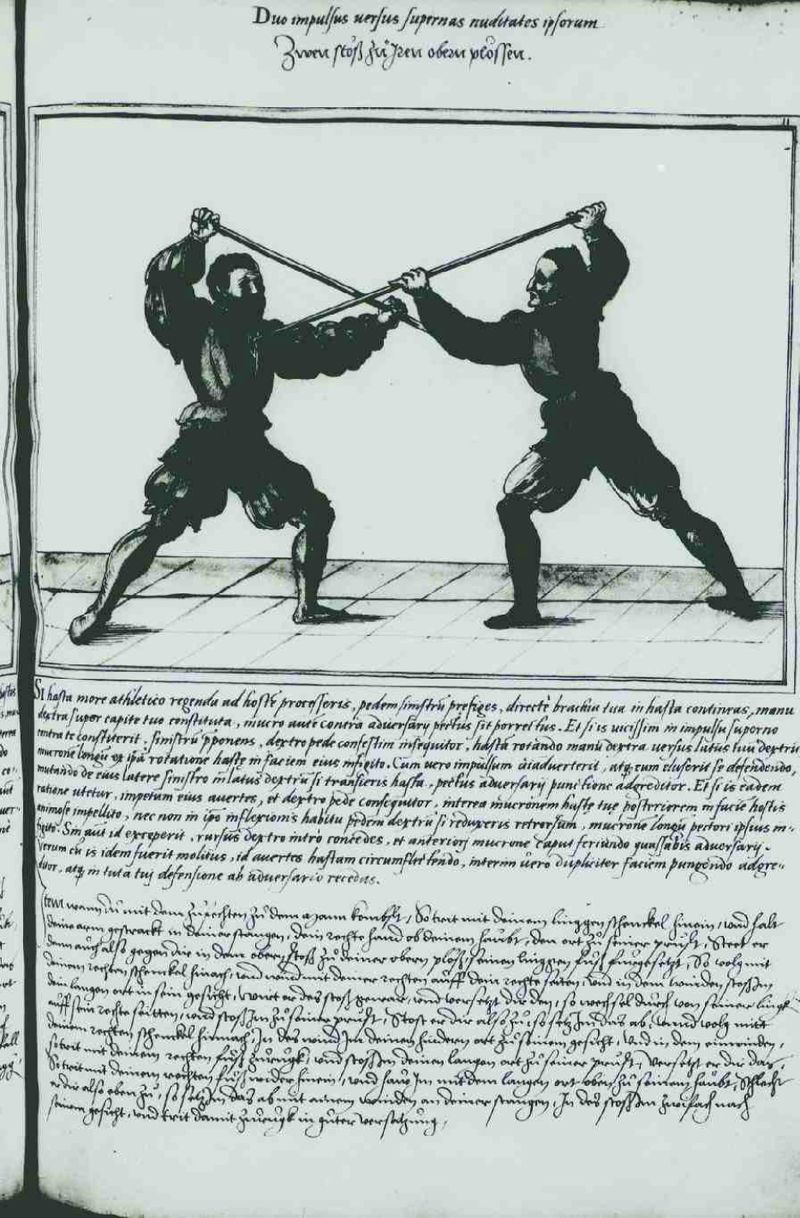 Duo impulsus versus supernas nuditates ipsorum
Zwen stöß zu Iren obern plössen.
SI hasta more athletico regenda ad hostē processeris, pedem sinistrū prefiges, directè brachia tua in hasta contineas, manu
dextra super capite tuo constituta, mucro ante contra adversarÿ pectus sit porrectus. Et si is vicissim in impulsu superno
contra te constiterit, sinistrū pponens, dextro pede confestim insequitor, hastā rotando manu dextra versus latus tuū dextrū
mucronē longū ex ipā rotatione hastę in faciem eius infigito. Cum vero impulsum aīadverterit, atq, eum eluserit se defendendo,
mutando de eius latere sinistro in latus dextrū si transieris hasta, pectus adversarÿ punctione adgreditor. Et si is eadem
ratione utetur, impetum eius avertes, et dextro pede consequitor, interea mucronem hastę tuę posteriorem in facie hostis
animose impellito, nec non in ipo inflexionis habitu pedem dextrū si reduxeris retrorsum, mucronē longū pectori ipsius in-
figito. Sin aūt id exceperit, rursus dextro intro concedes, et anteriori mucrone caput feriundo quassabis adversarÿ.
Verum cū is idem fuerit molitus, id avertes hastam circumflectendo, interim vero dupliciter faciem pungendo adgre-
ditor, atq, in tuta tuj defensione ab adversario recedas.
Item wann du mit dem zufechten zu dem mann kombst, So trit mit deinem linggen schenckel hinein, und halt
deine arm gestrackt in deiner stangen, dein rechte hand ob deinem haubt, den ort zu seiner prust, Steet er
dann auch also gegen dir in dem obern stoß zu deiner obern plöß, seinen linggen fuß furgesetzt, So volg mit
deinem rechten schenckel hinach, und wind mit deiner rechten auff dein rechte seiten, und in dem winden stoß Im
dein langen ort in sein gesicht, wirt er des stoß gewar, und versetzt dir den, so wechsel durch von seiner lingk
auff sein rechte seitten, und stoß Im zu seiner prust, Stost er dir also zu, so setz Im das ab, unnd volg mitt
deinem rechten schenckel hinnach, In des wind Im deinen hindern ort zu seinem gesicht, und in dem einwinden,
so trit mit deinem rechten fuß zurugk, und stoß Im deinen langen ort zu seiner prust, Versetzt er dir das,
So trit mit deinem rechten fuß wider hinein, und haw Im mit dem langen ort oben zu seinem haubt, Schlecht
er dir also oben zu, so setz Im das ab mit ainem winden an deiner stangen, In des stoß Im zwifach nach
seinem gesicht, und trit damit zurugk in guter versatzung,